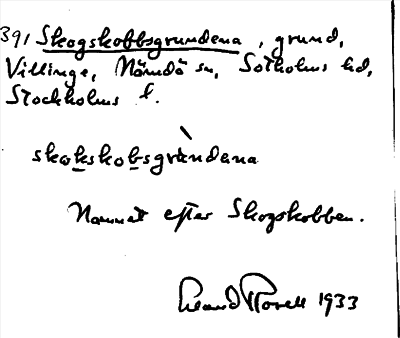 391 Skogskobbsgrundena, grund,
Villinge, Nämdö sn, Sotholms hd,
Stockholms l.
skokskobsgrùndena
Namnet efter Skogskobben.
1933